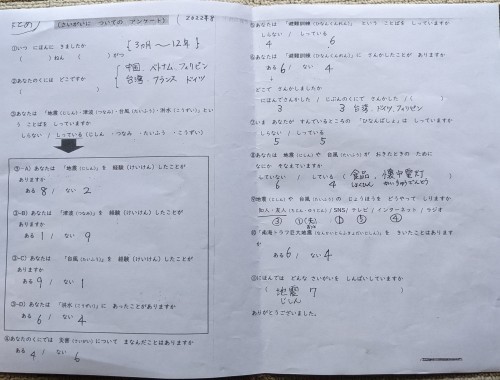 まとめ （さいがいに ついての アンケート） （2022年8
①いつ にほんに きましたか
（ ）ねん （ ）がつ
{3ヶ月～12年}
②あなたのくには どこですか
中国、ベトナム、フィリピン
台湾、フランス、ドイツ
③あなたは 「地震（じしん）・津波（つなみ）・台風（たいふう）・洪水（こうずい）」とい
う ことばを しっていますか
しらない / しっている（じしん ・つなみ ・たいふう ・こうずい）
③-A）あなたは 「地震（じしん）」を 経験（けいけん）したことが
ありますか
ある 8 / ない 2
③-B）あなたは 「津波（つなみ）」を 経験（けいけん）したことが
ありますか
ある 1 / ない 9
③-C）あなたは 「台風（たいふう）」を 経験（けいけん）したことが
ありますか
ある 9 / ない 1
③-D）あなたは 「洪水（こうずい）」に あったことがありますか
ある 6 / ない 4
④あなたのくにでは 災害（さいがい）について まなんだことはありますか
ある 4 / ない 6
⑤あなたは 「避難訓練（ひなんくんれん）」 という ことばを しっていますか
しらない / しっている
4 6
⑥あなたは 「避難訓練（ひなんくんれん）」に さんかしたことが ありますか
ある 6 / ない 4
↓
どこで さんかしましたか
にほんでさんかした / じぶんのくにで さんかした（ ）
3 3 台湾、ドイツ、フィリピン
⑦いま あなたが すんでいるところの 「ひなんばしょ」は しっていますか
しらない / しっている
5 5
⑧あなたは 地震（じしん）や 台風（たいふう）が おきたときの ために
なにか そなえていますか
していない / している （食品、懐中電灯
6 4 しょくひん かいちゅうでんとう）
⑨地震（じしん）や 台風（たいふう）の じょうほうを どうやって しりますか
知人・友人（ちじん・ゆうじん）/ SNS/ テレビ / インターネット / ラジオ
③ ① ① ⑤ ④
⑩「南海トラフ巨大地震（なんかいとらふきょだいじしん）」を きいたことはあります
か
ある 6 / ない 4
⑪にほんでは どんな さいがいを しんぱいしていますか
（ 地震 7 ）
じしん
ありがとうございました。